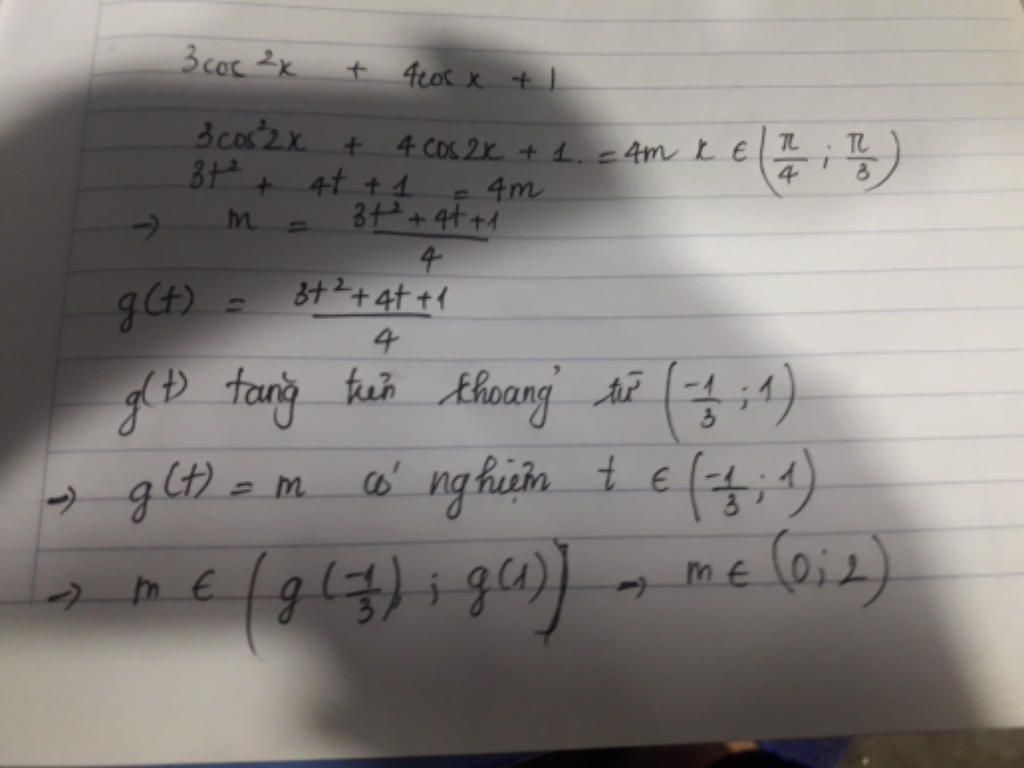 3cos²x + 4cosx + 1
3cos²2x + 4cos2x + 1. = 4m x ∈ (π/4 ; π/3)
3t² + 4t + 1 = 4m
→ m = (3t² + 4t + 1)/4
g(t) = (3t² + 4t + 1)/4
g(t) tăng trên khoảng từ (-1/3 ; 1)
→ g(t) = m có nghiệm t ∈ (-1/3 ; 1)
→ m ∈ (g(-1/3) ; g(1)] → m ∈ (0 ; 2)